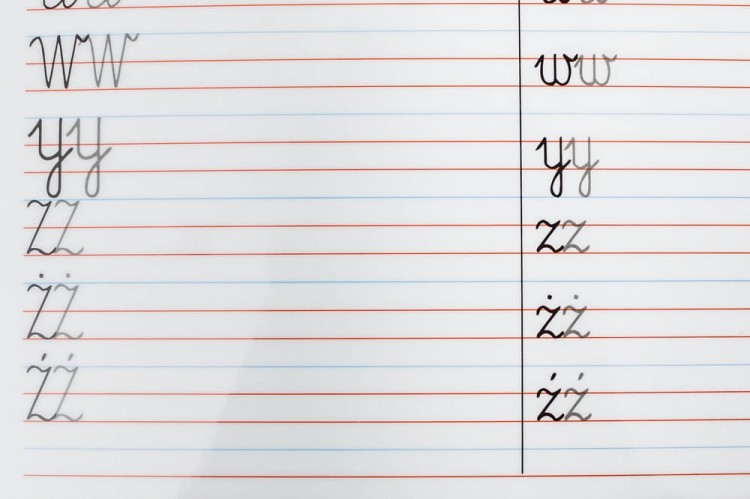 WW ww
YY yy
ZZ zz
ŻŻ żż
ŹŹ źź